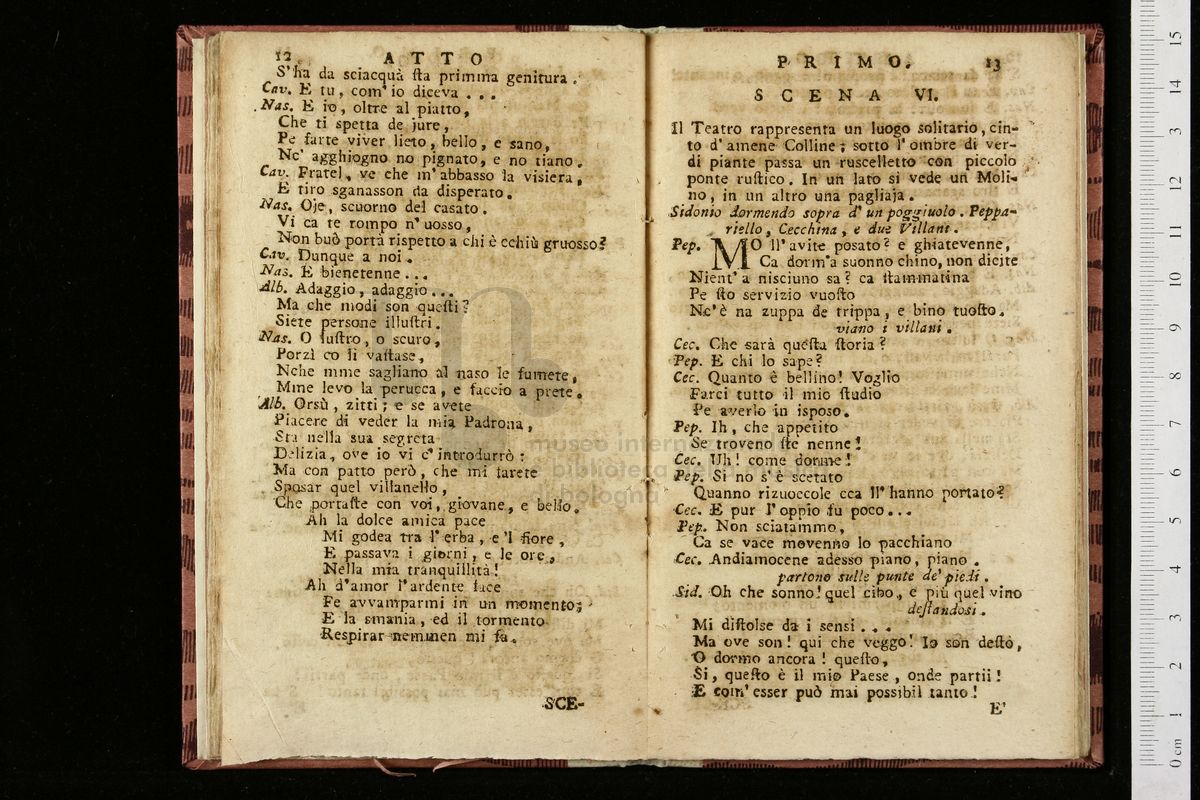 12 ATTO
S'ha da sciacquà sta primma genitura.
Cav. E tu, com' io diceva . . .
Nas. E io, oltre al piatto,
Che ti spetta de jure,
Pe farte viver lieto, bello, e sano,
Nc' agghiogno no pignato, e no tiano.
Cav. Fratel, ve che m' abbasso la visiera,
E tiro sganasson da disperato.
Nas. Oje, scuorno del casato.
Vi ca te rompo n' uosso,
Non buò portà rispetto a chi è cchiù gruosso?
Cav. Dunque a noi.
Nas. E bienetenne . . .
Alb. Adaggio, adaggio . . .
Ma che modi son questi?
Siete persone illustri.
Nas. O lustro, o scuro,
Porzì co li vastase,
Nche mme sagliano al naso le fumete,
Mme levo la perucca, e faccio a prete.
Alb. Orsù, zitti; e se avete
Piacere di veder la mia Padrona,
Sta nella sua segreta
Delizia, ove io vi c' introdurrò:
Ma con patto però, che mi farete
Sposar quel villanello,
Che portaste con voi, giovane, e bello.
Ah la dolce amica pace
Mi godea tra l' erba, e 'l fiore,
E passava i giorni, e le ore,
Nella mia tranquillità!
Ah d'amor l' ardente face
Fe avvamparmi in un momento;
E la smania, ed il tormento
Respirar nemmen mi fa.
SCE-
PRIMO. 13
SCENA VI.
Il Teatro rappresenta un luogo solitario, cin-
to d' amene Colline; sotto l' ombre di ver-
di piante passa un ruscelletto con piccolo
ponte rustico. In un lato si vede un Moli-
no, in un altro una pagliaja.
Sidonio dormendo sopra d' un poggiuolo. Peppa-
riello, Cecchina, e due Villani.
Pep. MO ll' avite posato? e ghiatevenne,
Ca dorm' a suonno chino, non dicite
Nient' a nisciuno sa? ca stammatina
Pe sto servizio vuosto
Nc' è na zuppa de trippa, e bino tuosto.
viano i villani.
Cec. Che sarà questa storia?
Pep. E chi lo sape?
Cec. Quanto è bellino! Voglio
Farci tutto il mio studio
Pe averlo in isposo.
Pep. Ih, che appetito
Se troveno ste nenne!
Cec. Uh! come dorme!
Pep. Si no s' è scetato
Quanno rizuoccole cca ll' hanno portato?
Cec. E pur l' oppio fu poco . . .
Pep. Non sciatammo,
Ca se vace movenno lo pacchiano
Cec. Andiamocene adesso piano, piano.
partono sulle punte de' piedi.
Sid. Oh che sonno! quel cibo, e più quel vino
destandosi.
Mi distolse da i sensi . . .
Ma ove son! qui che veggo! Io son desto,
O dormo ancora! questo,
Si, questo è il mio Paese, onde partii!
E com' esser può mai possibil tanto!
E'
museo
biblioteca
bologna
0 cm 1 2 3 4 5 6 7 8 9 10 11 12 13 14 15